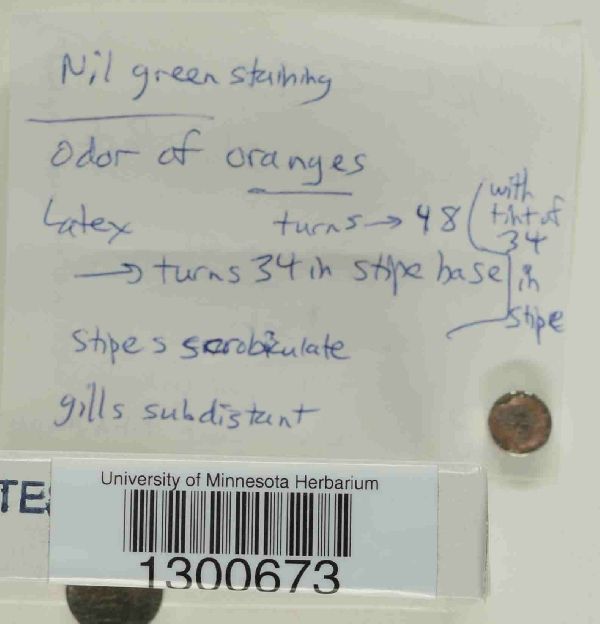 Nil green staining
Odor of oranges
Latex turns → 48 (with tint of 34 in stipe
→ turns 34 in stipe base
Stipe s scrobiculate
gills subdistant
TE
University of Minnesota Herbarium
1300673